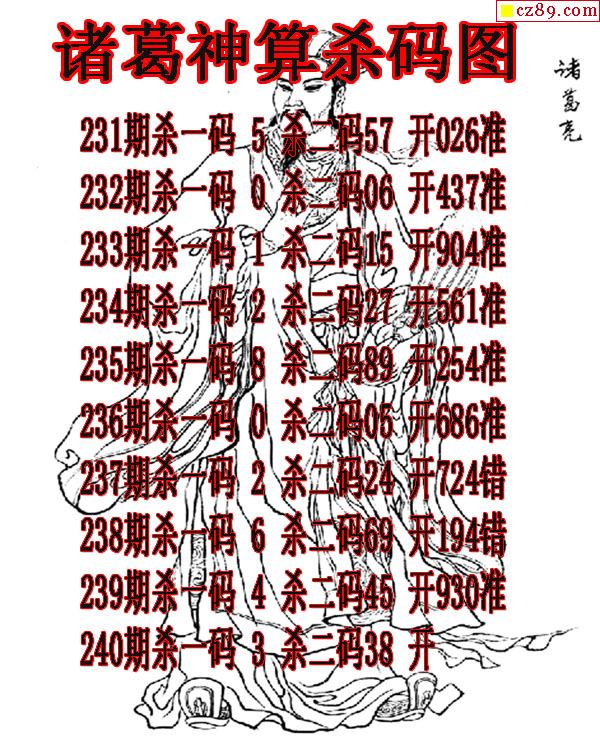 cz89.com
诸葛神算杀码图
诸葛亮
231期杀一码 5 杀二码57 开026准
232期杀一码 0 杀二码06 开437准
233期杀一码 1 杀二码15 开904准
234期杀一码 2 杀二码27 开561准
235期杀一码 8 杀二码89 开254准
236期杀一码 0 杀二码05 开686准
237期杀一码 2 杀二码24 开724错
238期杀一码 6 杀二码69 开194错
239期杀一码 4 杀二码45 开930准
240期杀一码 3 杀二码38 开